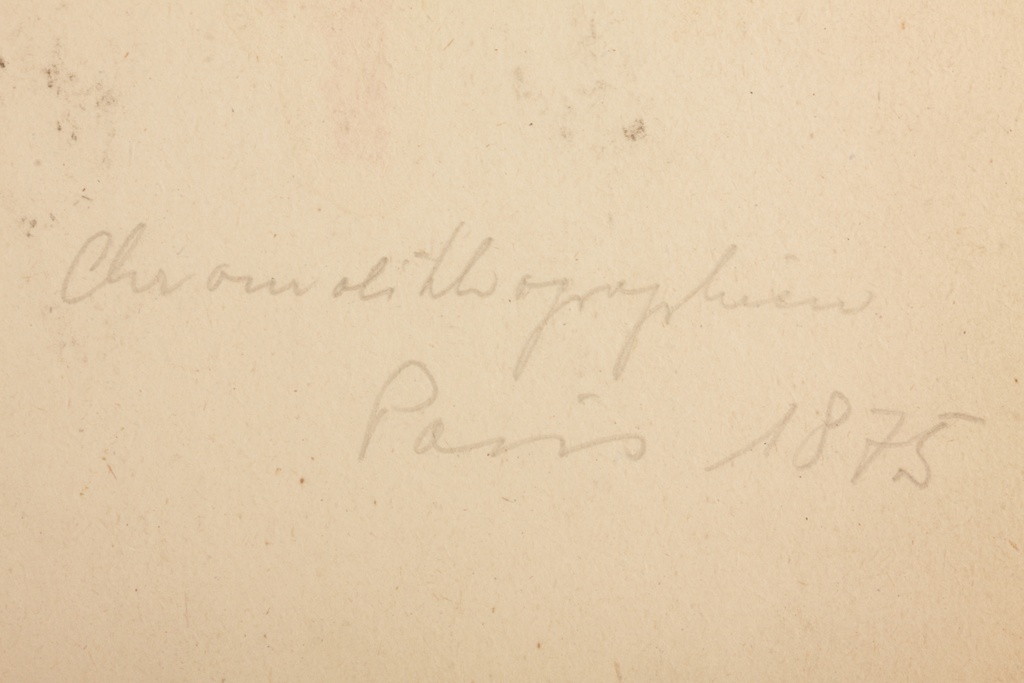 Chromolithographien
Paris 1875